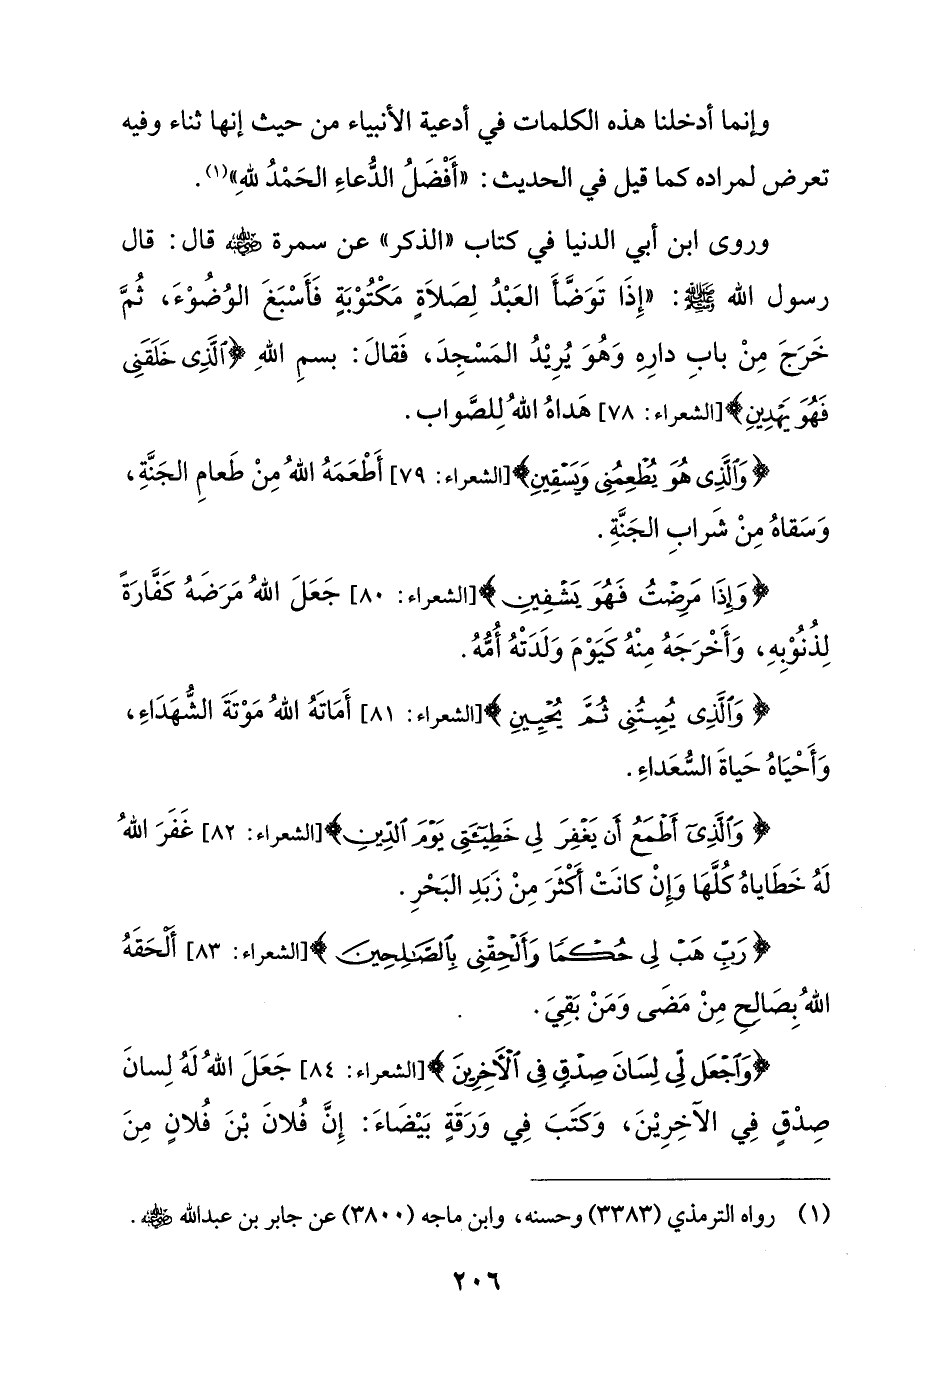 وإنما أدخلنا هذه الكلمات في أدعية الأنبياء من حيث إنها ثناء وفيه
تعرض لمراده كما قيل في الحديث: «أَفْضَلُ الدُّعاءِ الحَمْدُ للهِ»(١).
وروى ابن أبي الدنيا في كتاب «الذكر» عن سمرة رضي الله عنه قال: قال
رسول الله ﷺ: «إِذَا تَوَضَّأَ العَبْدُ لِصَلاَةٍ مَكْتُوْبَةٍ فَأَسْبَغَ الوُضُوْءَ، ثُمَّ
خَرَجَ مِنْ بابِ دارِهِ وَهُوَ يُرِيْدُ المَسْجِدَ، فَقالَ: بسمِ اللهِ ﴿ٱلَّذِى خَلَقَنِى
فَهُوَ يَهْدِينِ﴾[الشعراء: ٧٨] هَداهُ اللهُ لِلصَّواب.
﴿وَٱلَّذِى هُوَ يُطْعِمُنِى وَيَسْقِينِ﴾[الشعراء: ٧٩] أَطْعَمَهُ اللهُ مِنْ طَعامِ الجَنَّةِ،
وَسَقاهُ مِنْ شَرابِ الجَنَّةِ.
﴿وَإِذَا مَرِضْتُ فَهُوَ يَشْفِينِ﴾[الشعراء: ٨٠] جَعَلَ اللهُ مَرَضَهُ كَفَّارَةً
لِذُنُوْبِهِ، وَأَخْرَجَهُ مِنْهُ كَيَوْمَ وَلَدَتْهُ أُمُّهُ.
﴿وَٱلَّذِى يُمِيتُنِى ثُمَّ يُحْيِينِ﴾[الشعراء: ٨١] أَماتَهُ اللهُ مَوْتَةَ الشُّهَدَاءِ،
وَأَحْيَاهُ حَياةَ السُّعَداءِ.
﴿وَٱلَّذِىٓ أَطْمَعُ أَن يَغْفِرَ لِى خَطِيٓـَٔتِى يَوْمَ ٱلدِّينِ﴾[الشعراء: ٨٢] غَفَرَ اللهُ
لَهُ خَطَاياهُ كُلَّهَا وَإِنْ كانَتْ أَكْثَرَ مِنْ زَبَدِ البَحْرِ.
﴿رَبِّ هَبْ لِى حُكْمًا وَأَلْحِقْنِى بِٱلصَّـٰلِحِينَ﴾[الشعراء: ٨٣] أَلْحَقَهُ
اللهُ بِصَالِحِ مِنْ مَضَى وَمَنْ بَقِيَ.
﴿وَٱجْعَل لِّى لِسَانَ صِدْقٍ فِى ٱلْآخِرِينَ﴾[الشعراء: ٨٤] جَعَلَ اللهُ لَهُ لِسانَ
صِدْقٍ فِي الآخِرِيْنَ، وَكَتَبَ فِي وَرَقَةٍ بَيْضَاءَ: إِنَّ فُلانَ بْنَ فُلانٍ مِنَ
(١) رواه الترمذي (٣٣٨٣) وحسنه، وابن ماجه (٣٨٠٠) عن جابر بن عبدالله رضي الله عنه.
٢٠٦